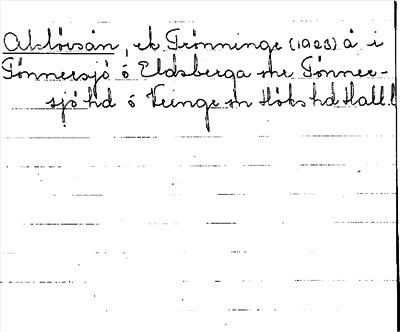 Aklövsån, ek Trönninge (1923) å i
Tönnersjö o Eldsberga snr Tönner-
sjö hd o Veinge sn Höks hd Hall.l